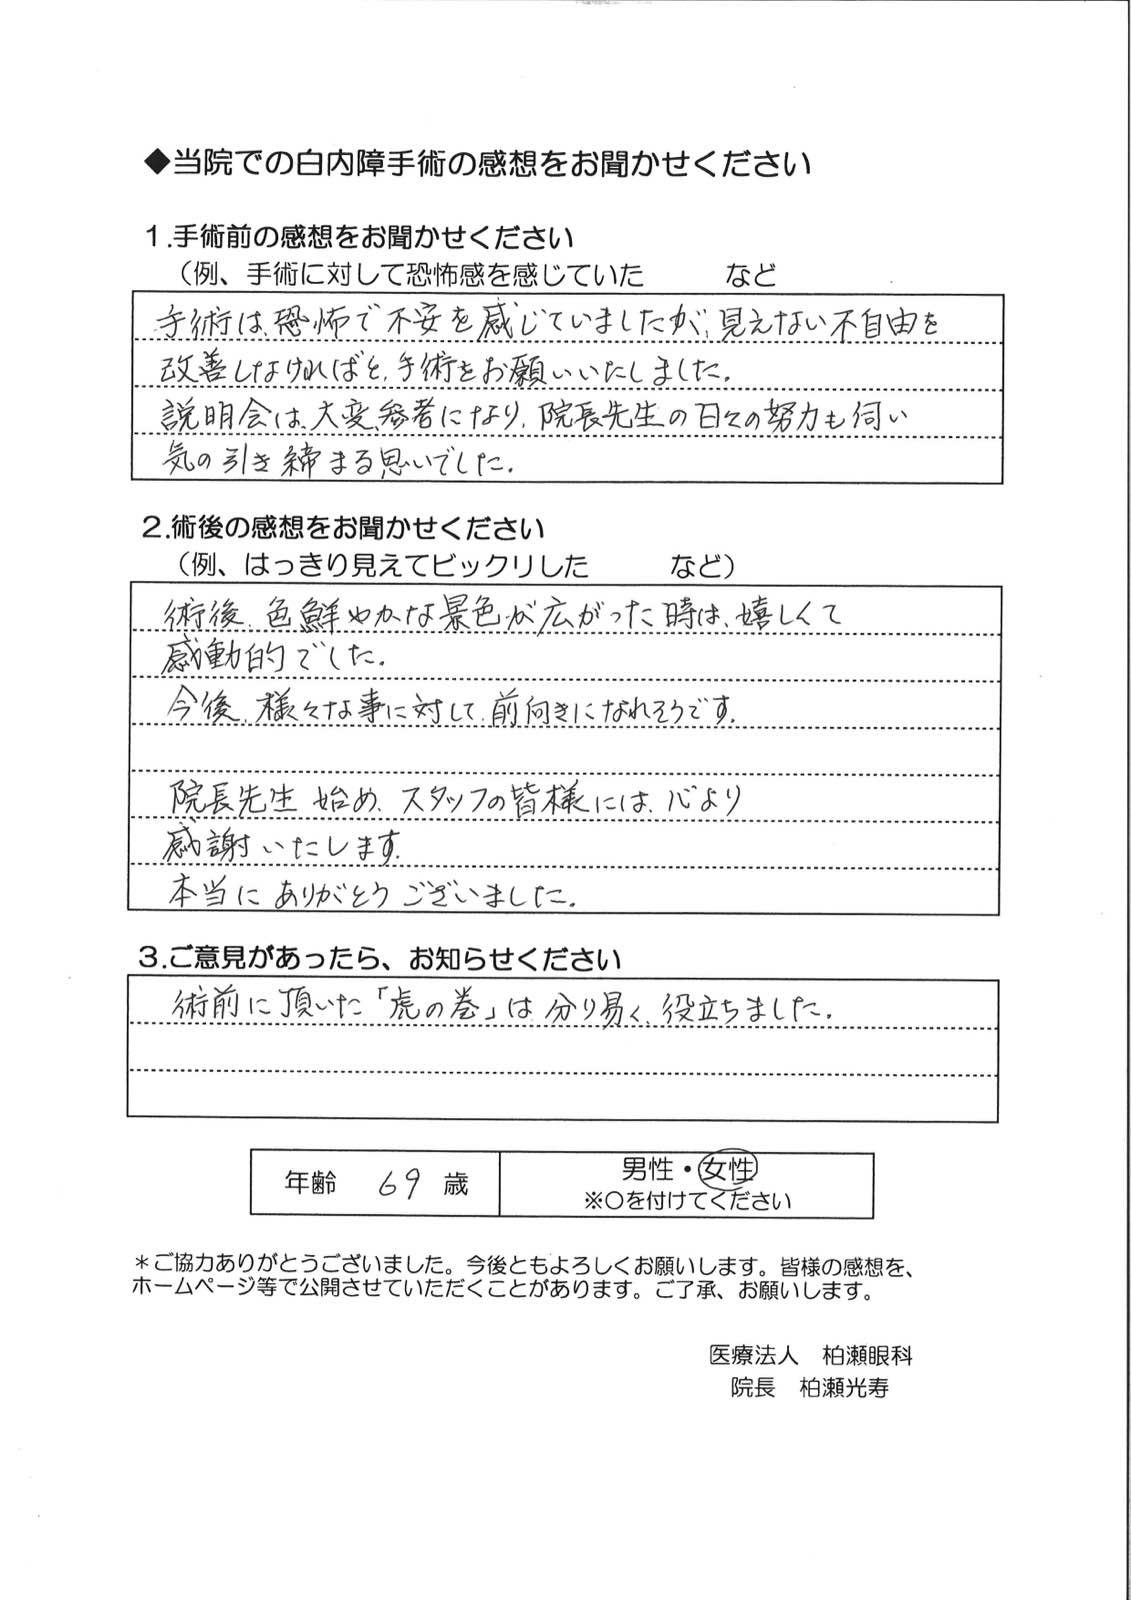 ◆当院での白内障手術の感想をお聞かせください
１.手術前の感想をお聞かせください
（例、手術に対して恐怖感を感じていた　　　など
手術は、恐怖で不安を感じていましたが、見えない不自由を
改善しなければと、手術をお願いいたしました。
説明会は、大変、参考になり、院長先生の日々の努力も伺い
気の引き締まる思いでした。
２.術後の感想をお聞かせください
（例、はっきり見えてビックリした　　　など）
術後、色鮮やかな景色が広がった時は、嬉しくて
感動的でした。
今後、様々な事に対して、前向きになれそうです。
院長先生 始め、スタッフの皆様には、心より
感謝いたします。
本当に ありがとう ございました。
３.ご意見があったら、お知らせください
術前に頂いた「虎の巻」は 分り易く、役立ちました。
年齢 69 歳
男性・女性
※○を付けてください
＊ご協力ありがとうございました。今後ともよろしくお願いします。皆様の感想を、
ホームページ等で公開させていただくことがあります。ご了承、お願いします。
医療法人　柏瀬眼科
院長　柏瀬光寿